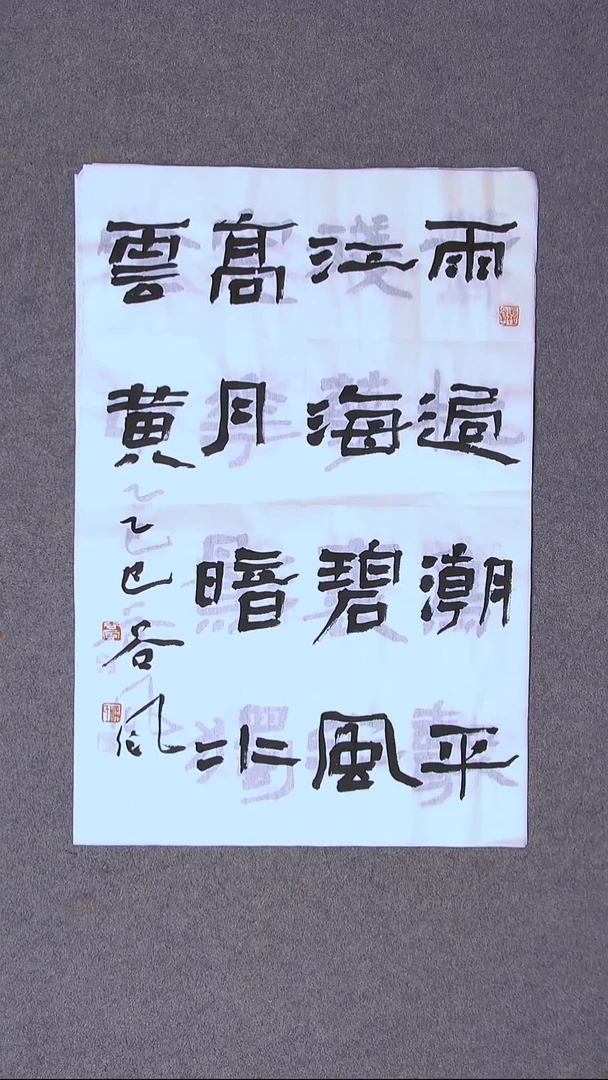 雨過潮平
江海碧風
高月暗水
雲黄
乙巳谷風